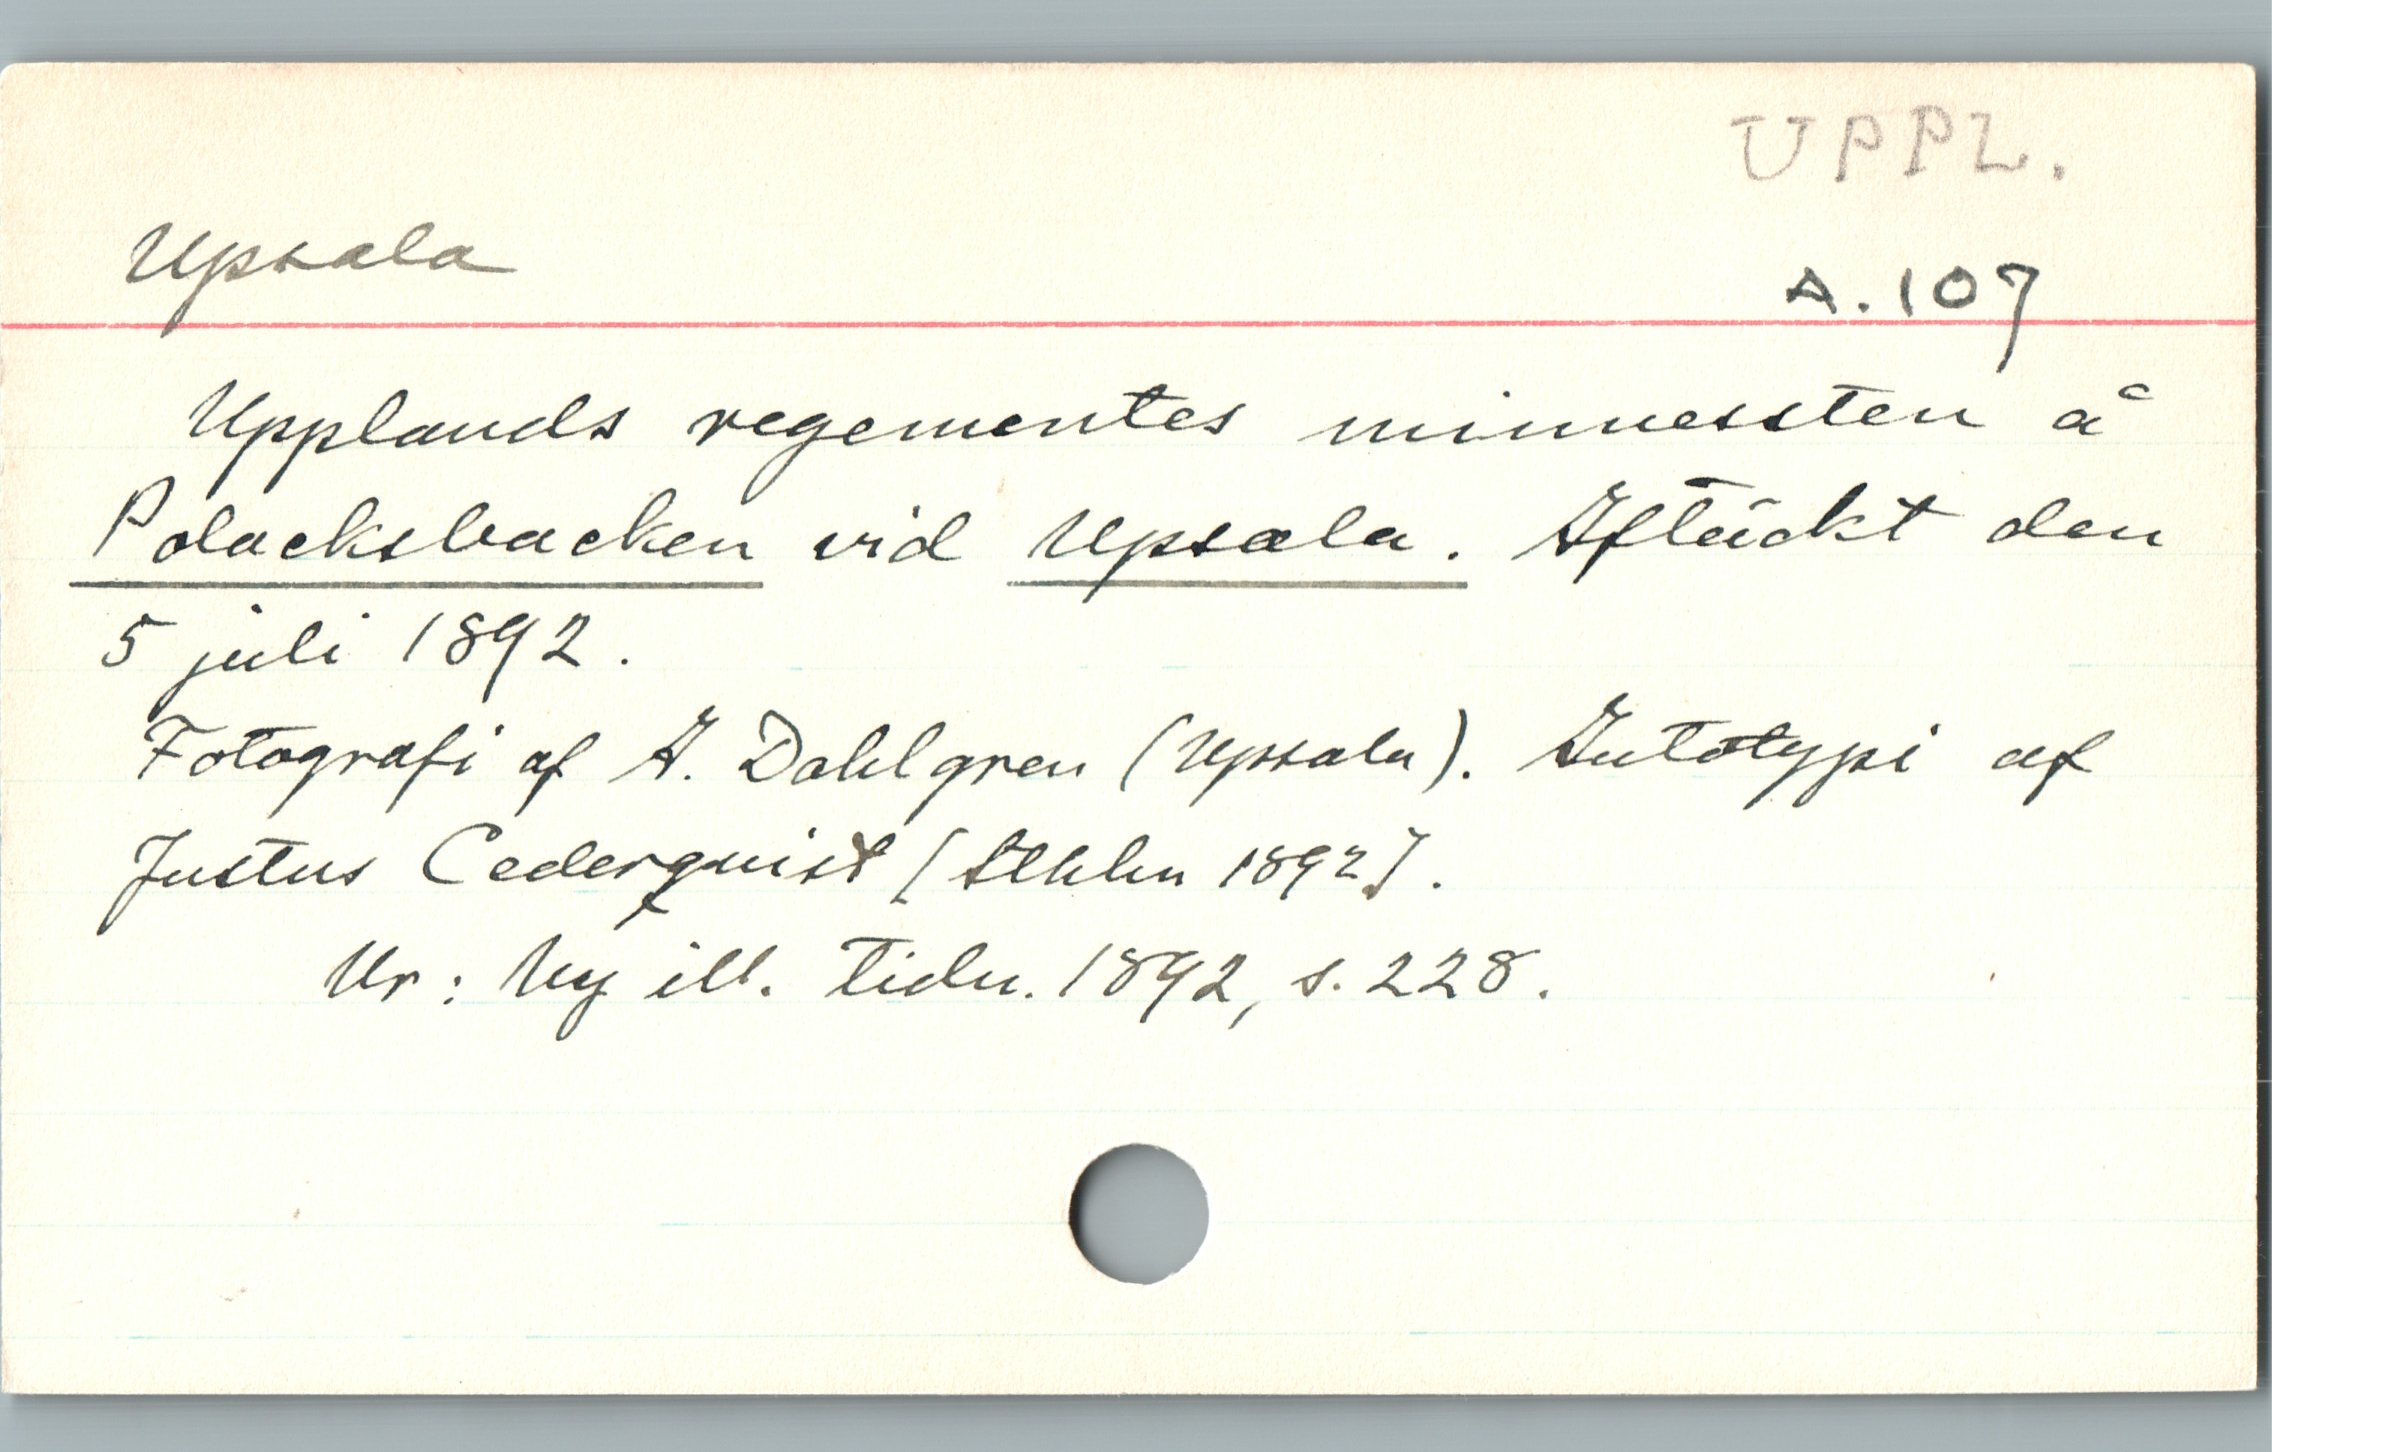 UPPL.
Upsala
A.107
Upplands regementes minnessten å
Polacksbacken vid Upsala. Aftäckt den
5 juli 1892.
Fotografi af A. Dahlgren (Upsala). Autotypi af
Justus Cederquist [Sthlm 1892].
Ur: Ny ill. tidn. 1892, s. 228.